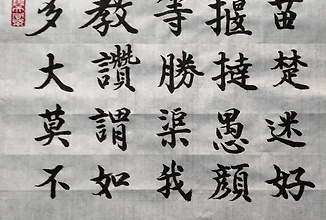 苗楚迷好
揠撻愚顏
等勝渠我
教讚謂如
多大莫不